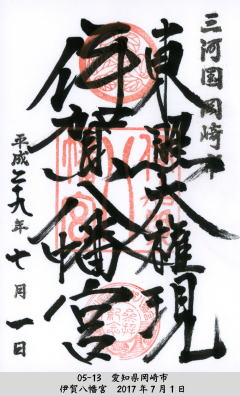 三河国岡崎市
東照大権現
伊賀八幡宮
平成二十九年七月一日
05-13 愛知県岡崎市
伊賀八幡宮 2017年7月1日